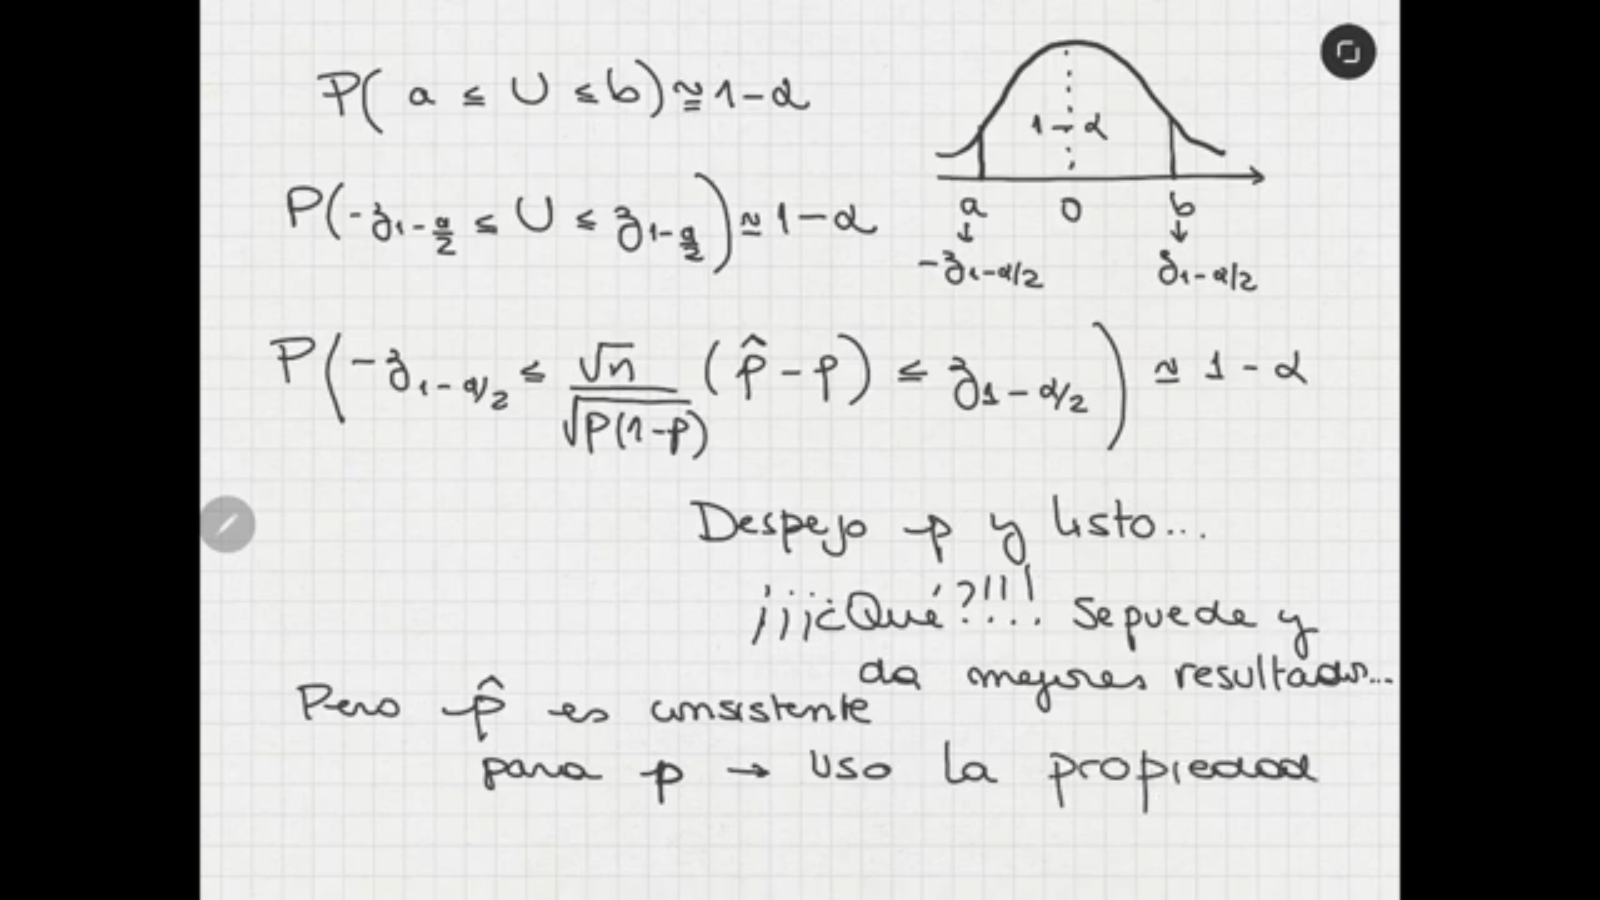 P( a ≤ U ≤ b) ≅ 1-α
1-α
a 0 b
↓ ↓
-z1-α/2 z1-α/2
P(-z1-α/2 ≤ U ≤ z1-α/2) ≅ 1-α
P(-z1-α/2 ≤ √n/√p(1-p) (p̂ - p) ≤ z1-α/2) ≅ 1-α
Despejo p y listo...
¡¡¡¿Qué?!!!... Se puede y
da mejores resultados...
Pero p̂ es consistente
para p → Uso la propiedad